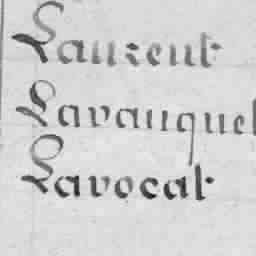 Laurent
Lavauquel
Lavocat